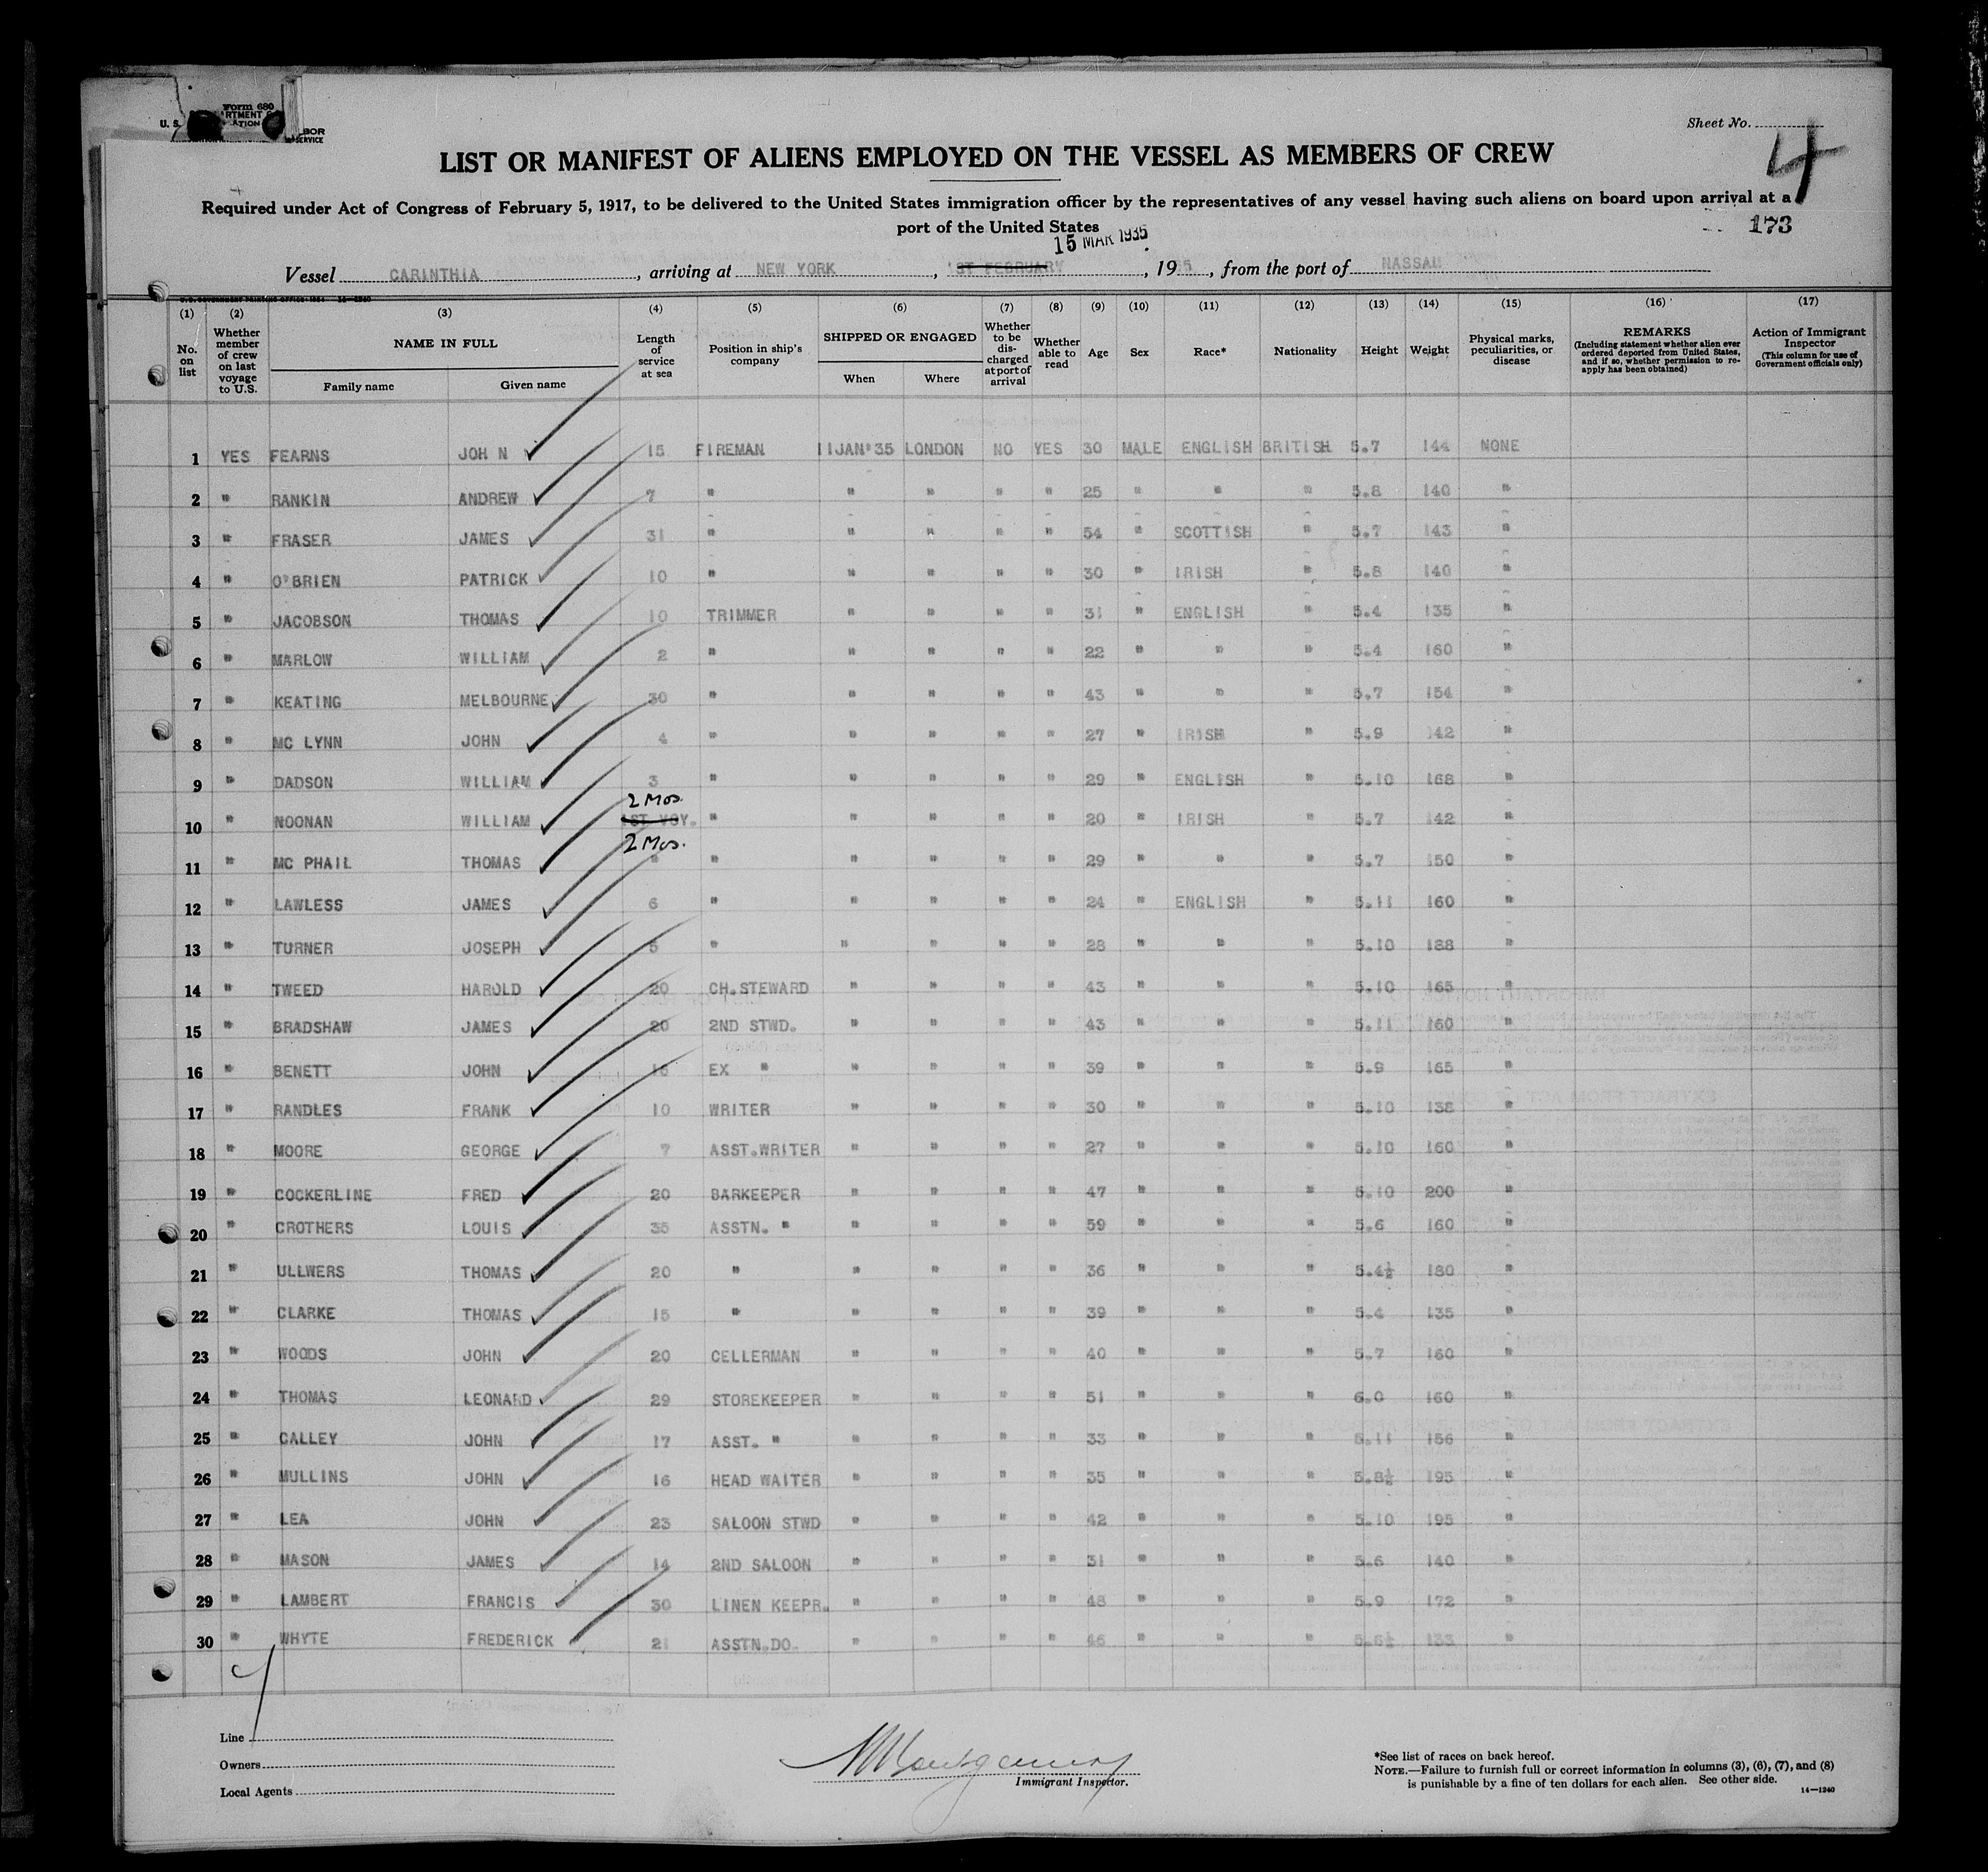 Form 680
U. S.
LABOR
SERVICE
Sheet No. 4
LIST OR MANIFEST OF ALIENS EMPLOYED ON THE VESSEL AS MEMBERS OF CREW
Required under Act of Congress of February 5, 1917, to be delivered to the United States immigration officer by the representatives of any vessel having such aliens on board upon arrival at a
port of the United States
173
15 MAR 1935
Vessel CARINTHIA, arriving at NEW YORK, 1ST FEBRUARY, 1935, from the port of NASSAU
(1) (2) (3) (4) (5) (6) (7) (8) (9) (10) (11) (12) (13) (14) (15) (16) (17)
No. on list
Whether member of crew on last voyage to U.S.
NAME IN FULL
Family name Given name
Length of service at sea
Position in ship's company
SHIPPED OR ENGAGED
When Where
Whether to be discharged at port of arrival
Whether able to read
Age
Sex
Race*
Nationality
Height
Weight
Physical marks, peculiarities, or disease
REMARKS
(Including statement whether alien ever ordered deported from United States, and if so, whether permission to re-apply has been obtained)
Action of Immigrant Inspector
(This column for use of Government officials only)
1 YES FEARNS JOH N 15 FIREMAN 11JAN"35 LONDON NO YES 30 MALE ENGLISH BRITISH 5.7 144 NONE
2 " RANKIN ANDREW 7 " " " " " 25 " " " 5.8 140 "
3 " FRASER JAMES 31 " " " " " 54 " SCOTTISH " 5.7 143 "
4 " O'BRIEN PATRICK 10 " " " " " 30 " IRISH " 5.8 140 "
5 " JACOBSON THOMAS 10 TRIMMER " " " " 31 " ENGLISH " 5.4 135 "
6 " MARLOW WILLIAM 2 " " " " " 22 " " " 5.4 160 "
7 " KEATING MELBOURNE 30 " " " " " 43 " " " 5.7 154 "
8 " MC LYNN JOHN 4 " " " " " 27 " IRISH " 5.9 142 "
9 " DADSON WILLIAM 3 " " " " " 29 " ENGLISH " 5.10 168 "
2 Mos.
10 " NOONAN WILLIAM 1ST VOY. " " " " " 20 " IRISH " 5.7 142 "
2 Mos.
11 " MC PHAIL THOMAS " " " " " " 29 " " " 5.7 150 "
12 " LAWLESS JAMES 6 " " " " " 24 " ENGLISH " 5.11 160 "
13 " TURNER JOSEPH 5 " " " " " 28 " " " 5.10 188 "
14 " TWEED HAROLD 20 CH.STEWARD " " " " 43 " " " 5.10 165 "
15 " BRADSHAW JAMES 20 2ND STWD. " " " " 43 " " " 5.11 160 "
16 " BENETT JOHN 16 EX " " " " " 39 " " " 5.9 165 "
17 " RANDLES FRANK 10 WRITER " " " " 30 " " " 5.10 138 "
18 " MOORE GEORGE 7 ASST.WRITER " " " " 27 " " " 5.10 160 "
19 " COCKERLINE FRED 20 BARKEEPER " " " " 47 " " " 5.10 200 "
20 " CROTHERS LOUIS 35 ASSTN. " " " " " 59 " " " 5.6 160 "
21 " ULLWERS THOMAS 20 " " " " " 36 " " " 5.4½ 180 "
22 " CLARKE THOMAS 15 " " " " " 39 " " " 5.4 135 "
23 " WOODS JOHN 20 CELLERMAN " " " " 40 " " " 5.7 160 "
24 " THOMAS LEONARD 29 STOREKEEPER " " " " 51 " " " 6.0 160 "
25 " CALLEY JOHN 17 ASST. " " " " " 33 " " " 5.11 156 "
26 " MULLINS JOHN 16 HEAD WAITER " " " " 35 " " " 5.8½ 195 "
27 " LEA JOHN 23 SALOON STWD " " " " 42 " " " 5.10 195 "
28 " MASON JAMES 14 2ND SALOON " " " " 31 " " " 5.6 140 "
29 " LAMBERT FRANCIS 30 LINEN KEEPR. " " " " 48 " " " 5.9 172 "
30 " WHYTE FREDERICK 21 ASSTN.DO. " " " " 46 " " " 5.6½ 133 "
Line
Owners
Local Agents
Montgomery
Immigrant Inspector.
*See list of races on back hereof.
NOTE.—Failure to furnish full or correct information in columns (3), (6), (7), and (8)
is punishable by a fine of ten dollars for each alien. See other side.
14—1240